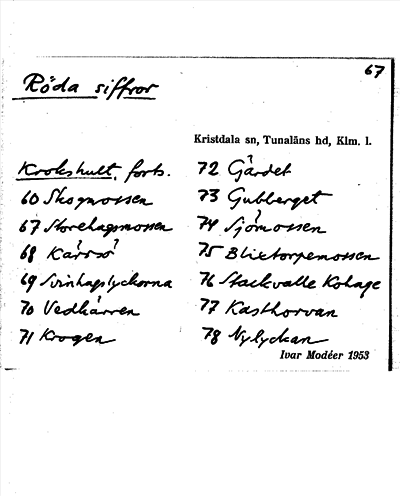 67
Röda siffror
Kristdala sn, Tunaläns hd, Klm. l.
Krokshult, forts.
60 Skogmossen
67 Storehagsmossen
68 Kärrö
69 Svinhagslyckorna
70 Vedkärren
71 Krogen
72 Gärdet
73 Gubberget
74 Sjömossen
75 Blixtorpemossen
76 Stackvalle Kohage
77 Kasthorvan
78 Nylyckan
Ivar Modéer 1953